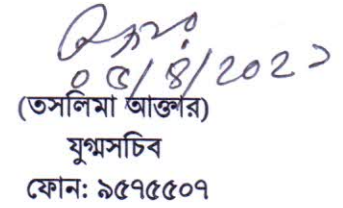 ০৫/৪/২০২১
(তসলিমা আক্তার)
যুগ্মসচিব
ফোন: ৯৫৭৫৫০৭